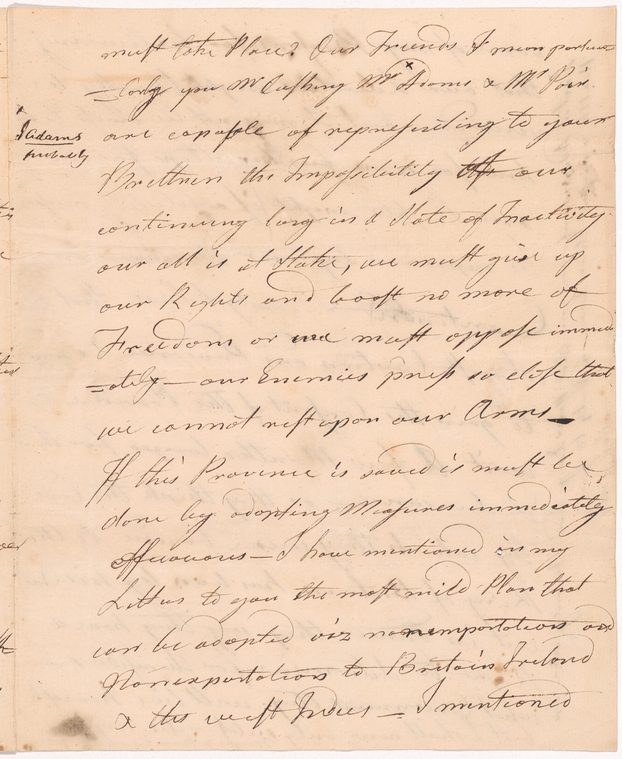 must take Place? Our Friends I mean particu
=larly you Mr Cushing Mr x Adams & Mr Pain
x
J Adams
probably
are capable of representing to your
Brethren the Impossibility of our
continuing long in a State of Inactivity.
our all is at Stake, we must give up
our Rights and boast no more of
Freedom or we must oppose immedi
=ately — our Enemies press so close that
we cannot rest upon our Arms —
If this Province is saved is must be
done by adopting Measures immediately
efficacious — I have mentioned in my
Letters to you the most mild Plan that
can be adopted viz nonimportation and
Nonexportation to Britain Ireland
& the west Indies — I mentioned